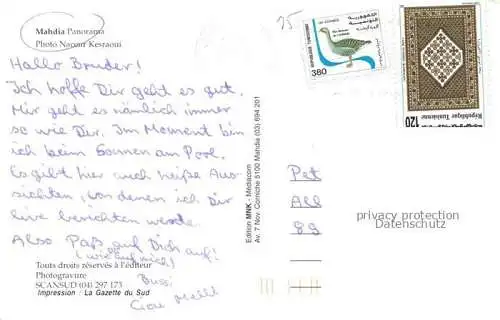 Mahdia Panorama
Photo Naceur Kesraoui
Hallo Bruder!
Ich hoffe Dir geht es gut.
Mir geht es nämlich immer
so wie Dir. Im Moment bin
ich beim Sonnen am Pool.
Es gibt hier auch heiße Aus-
sichten, von denen ich Dir
live berichten werde.
Also Paß auf Dich auf!
(wie auf mich)
Bussi
Ciao
Touts droits réservés à l'éditeur
Photogravure
SCANSUD (04) 297 173
Impression : La Gazette du Sud
Edition MNK - Médiacom
Av. 7 Nov. Corniche 5100 Mahdia (03) 694 201
15
REPUBLIQUE TUNISIENNE
380
République Tunisienne
120
Pet
All
89
privacy protection
Datenschutz